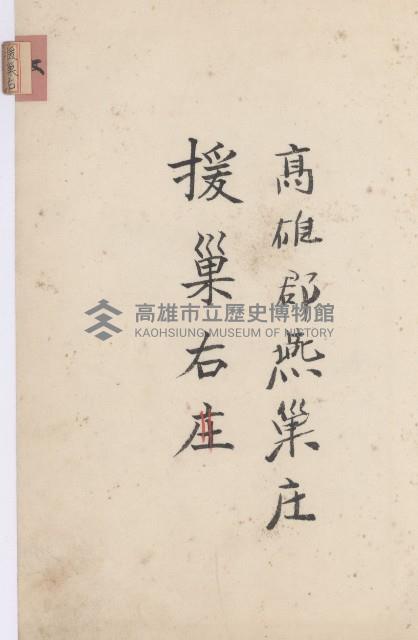 高雄郡燕巢庄
援巢右庄
援巢右
高雄市立歷史博物館
KAOHSIUNG MUSEUM OF HISTORY